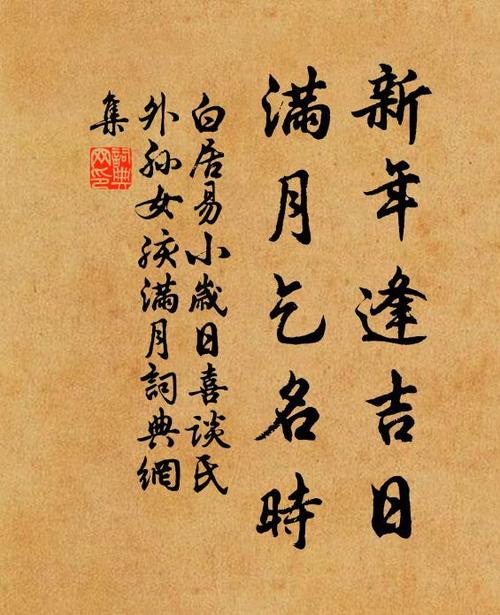 新年逢吉日
满月乞名時
白居易小歲日喜談氏
外孙女孩满月詞典網
集
詞典网印